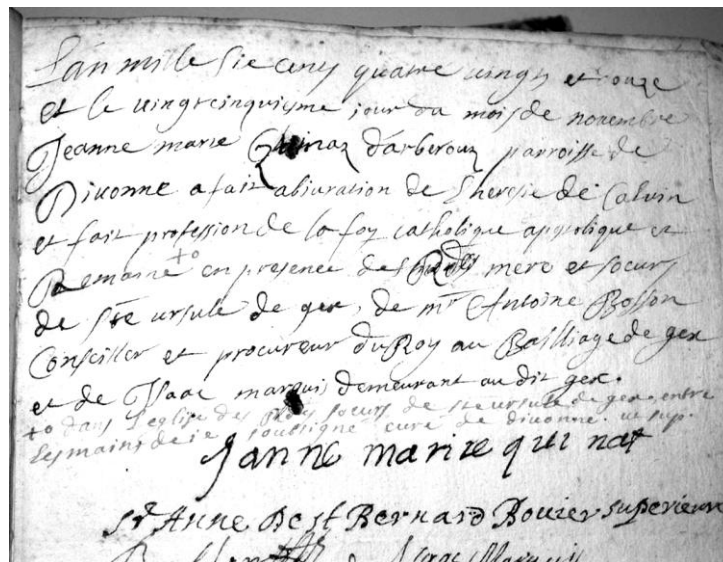 L'an mille sie cens quatre vingts et onze
et le vingtcinquisme jour du mois de novembre
Jeanne marie Quinaz d'arberouz parroisse de
Divonne a fait abjuration de l'heresie de Calvin
et fait profession de la foy catholique apostolique et
Romaine +o en presence des mere et soeurs
de Ste ursule de gex, de mr Antoine Rosson
Conseiller et procureur du Roy au Bailliage de gex
et de Isaac marquis demeurant au dit gex.
+o dans l'eglise des soeurs de ste ursule de gex entre
les mains de ie soubsigné curé de divonne. ut sup.
Janne marire qui naz
sr Anne De st Bernard Bouier superieure
Isaac Marquis